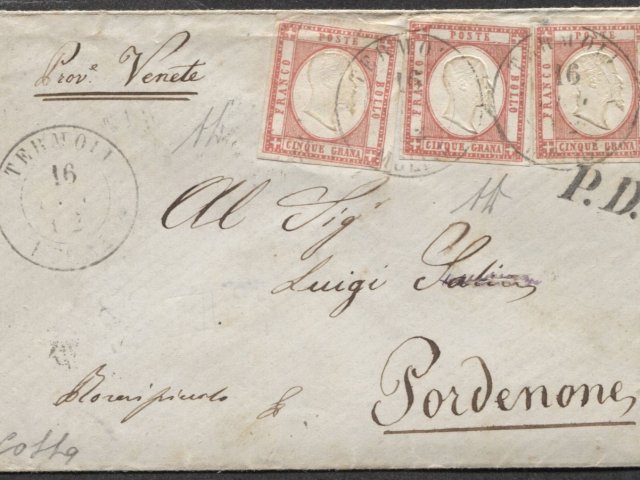 Prov.e Venete
POSTE
FRANCO
BOLLO
CINQUE GRANA
POSTE
FRANCO
BOLLO
CINQUE GRANA
POSTE
FRANCO
BOLLO
CINQUE GRANA
TERMOLI
16
TERMOLI
16
TERMOLI
16
P.D.
Al Sig
Luigi
Pordenone